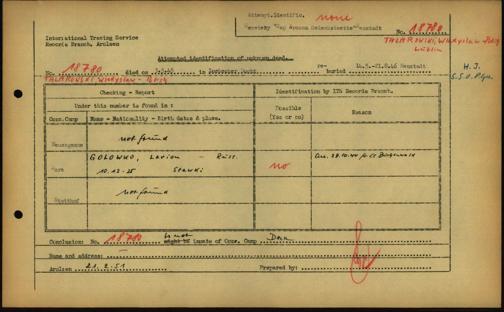 Attempt.Identific. none
Cemetery "Cap Arcona Gedenkstaette" Neustadt
International Tracing Service
Records Branch, Arolsen
No. 18780
TALAROWSKI, Wladyslaw - Polish
Lublin
Attempted identification of unknown dead.
No. 18780 died on 3.5.45 in re-buried 14.5.-21.8.46 Neustadt
TALAROWSKI, Wladyslaw - Polish
H.J.
Checking - Report
Identification by ITS Records Branch.
Under this number is found in :
Possible
(Yes or no)
Reason
Conc.Camp
Name - Nationality - Birth dates & place.
Neuengamme
not found
GOLOWKO, Larion - Russ.
Dora
10.12.25 Stawki
no
Stutthof
not found
Conclusion: No. 18780 is not might be inmate of Conc. Camp Dora
Name and address: -
Arolsen 21.2.51
Prepared by: